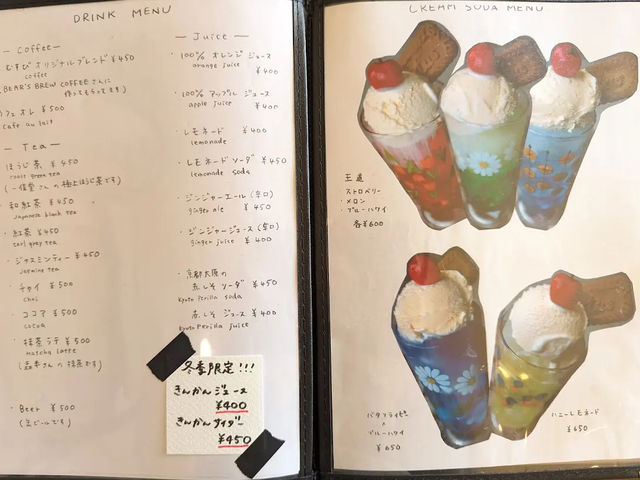 DRINK MENU
— Coffee —
むすび オリジナルブレンド ¥450
coffee
BEAR'S BREW COFFEEさんに
作ってもらってます)
カフェ オレ ¥500
cafe au lait
— Tea —
ほうじ茶 ¥450
roast green tea
(一保堂さんの極上ほうじ茶です)
・和紅茶 ¥450
Japanese black tea
・紅茶 ¥450
earl grey tea
・ジャスミンティー ¥450
Jasmine tea
・チャイ ¥500
chai
・ココア ¥500
cocoa
・抹茶ラテ ¥500
Matcha latte
さんの抹茶です)
・Beer ¥500
(生ビールです)
— Juice —
・100% オレンジ ジュース
orange juice
¥400
・100% アップル ジュース
apple juice ¥400
・レモネード ¥400
lemonade
・レモネード ソーダ ¥450
lemonade soda
・ジンジャーエール (辛口)
ginger ale ¥450
・ジンジャージュース (辛口)
ginger juice ¥400
・京都大原の
赤しそ ソーダ ¥450
Kyoto Perilla soda
・赤しそ ジュース ¥400
Kyoto Perilla juice
冬季限定!!!
きんかんジュース
¥400
きんかんサイダー
¥450
CREAM SODA MENU
王道
ストロベリー
・メロン
・ブルーハワイ
各¥600
バタフライピー
ブルーハワイ
¥650
ハニーレモネード
¥650